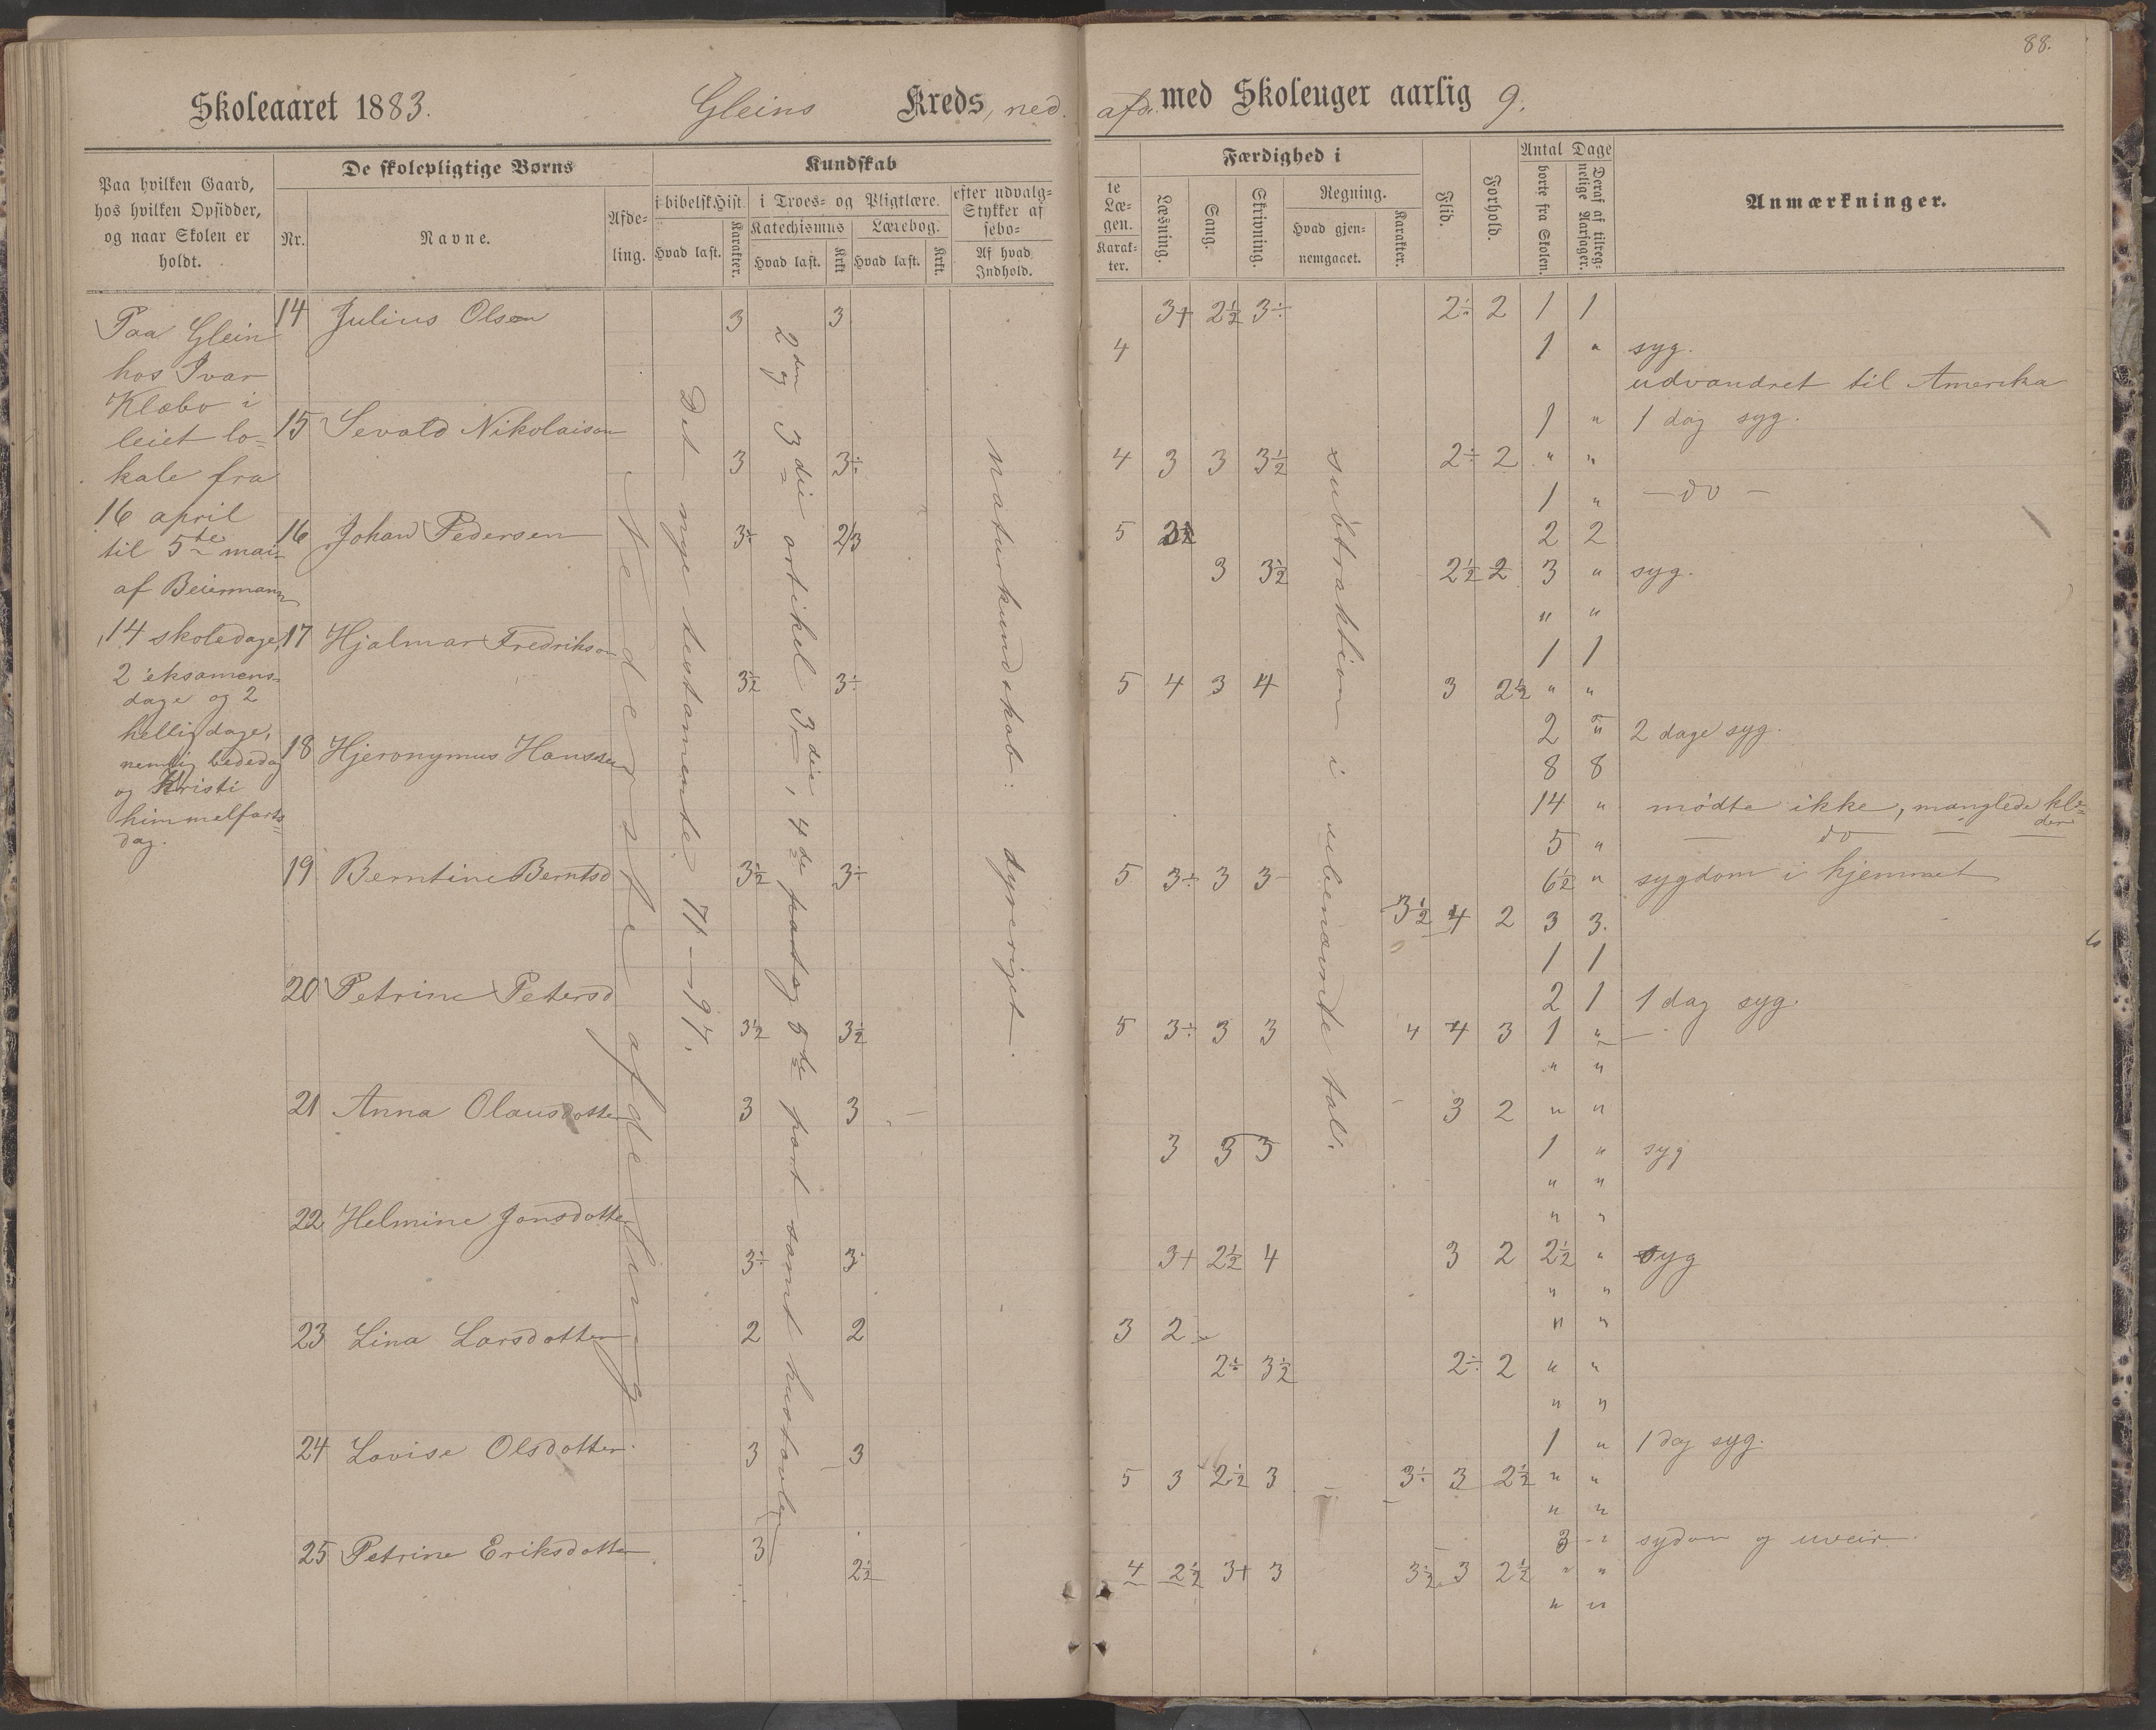 88.
Skoleaaret 1883. Gleins Kreds, ned. afd. med Skoleuger aarlig 9.
Paa hvilken Gaard, hos hvilken Opsidder, og naar Skolen er holdt.
De skolepligtige Børns
Nr.
Navne.
Afdeling.
Kundskab
i bibelsk Hist.
Hvad læst.
Karakter.
i Troes- og Pligtlære.
Katechismus
Hvad læst.
Krkt
Lærebog.
Hvad læst.
Krkt.
efter udvalg-
Stykker af
sebo-
Af hvad
Indhold.
te
Læ-
gen.
Karak-
ter.
Færdighed i
Læsning.
Sang.
Skrivning.
Regning.
Hvad gjen-
nemgaaet.
Karakter.
Flid.
Forhold.
Antal Dage
borte fra Skolen.
Deraf af tilreg-
nelige Aarsager.
Anmærkninger.
Paa Glein
hos Ivar
Klæbo i
leiet lo-
kale fra
16 april
til 5te mai
af Beiermann
14 skoledage,
2 eksamens-
dage og 2
helligdage,
nemlig bededag
og Kristi
himmelfarts
dag.
Nederste afdeling
Det nye testamente 71 — 94.
2den og 3die artikel 3die, 4de part og 5te part samt hustavlen
naturkundskab: dyreriget.
subtraktion i ubenævnte tal.
14 Julius Olsen 3 3 3+ 2½ 3÷ 2÷ 2 1 1
4 1 " syg.
udvandret til Amerika
15 Sevald Nikolaisen 1 " 1 dag syg.
3 3÷ 4 3 3 3½ 2÷ 2 " "
1 " — do —
16 Johan Pedersen 3÷ 2/3 5 3½ 2 2
3 3½ 2½ 2 3 " syg.
" "
17 Hjalmar Fredriksen 1 1
3½ 3÷ 5 4 3 4 3 2½ " "
2 " 2 dage syg.
18 Hjeronymus Hanssen 8 8
14 " mødte ikke, manglede klæ-
der
5 " — do — —
19 Berntine Berntsd 3½ 3÷ 5 3÷ 3 3 6½ " sygdom i hjemmet
3½ 4 2 3 3.
1 1
20 Petrine Petersd 2 1 1 dag syg.
3½ 3½ 5 3÷ 3 3 4 4 3 1 "
" "
21 Anna Olausdotter 3 3 3 2 " "
3 3 3 1 " syg
" "
22 Helmine Jonsdotter " "
3÷ 3 3+ 2½ 4 3 2 2½ " syg
" "
23 Lina Larsdotter 2 2 3 2 " "
2÷ 3½ 2÷ 2 " "
" "
24 Lovise Olsdotter. 3 3 1 " 1 dag syg.
5 3 2½ 3 3÷ 3 2½ " "
" "
25 Petrine Eriksdotter 3 3 " sydom og uveir.
2½ 4 2½ 3+ 3 3½ 3 2½ " "
" "